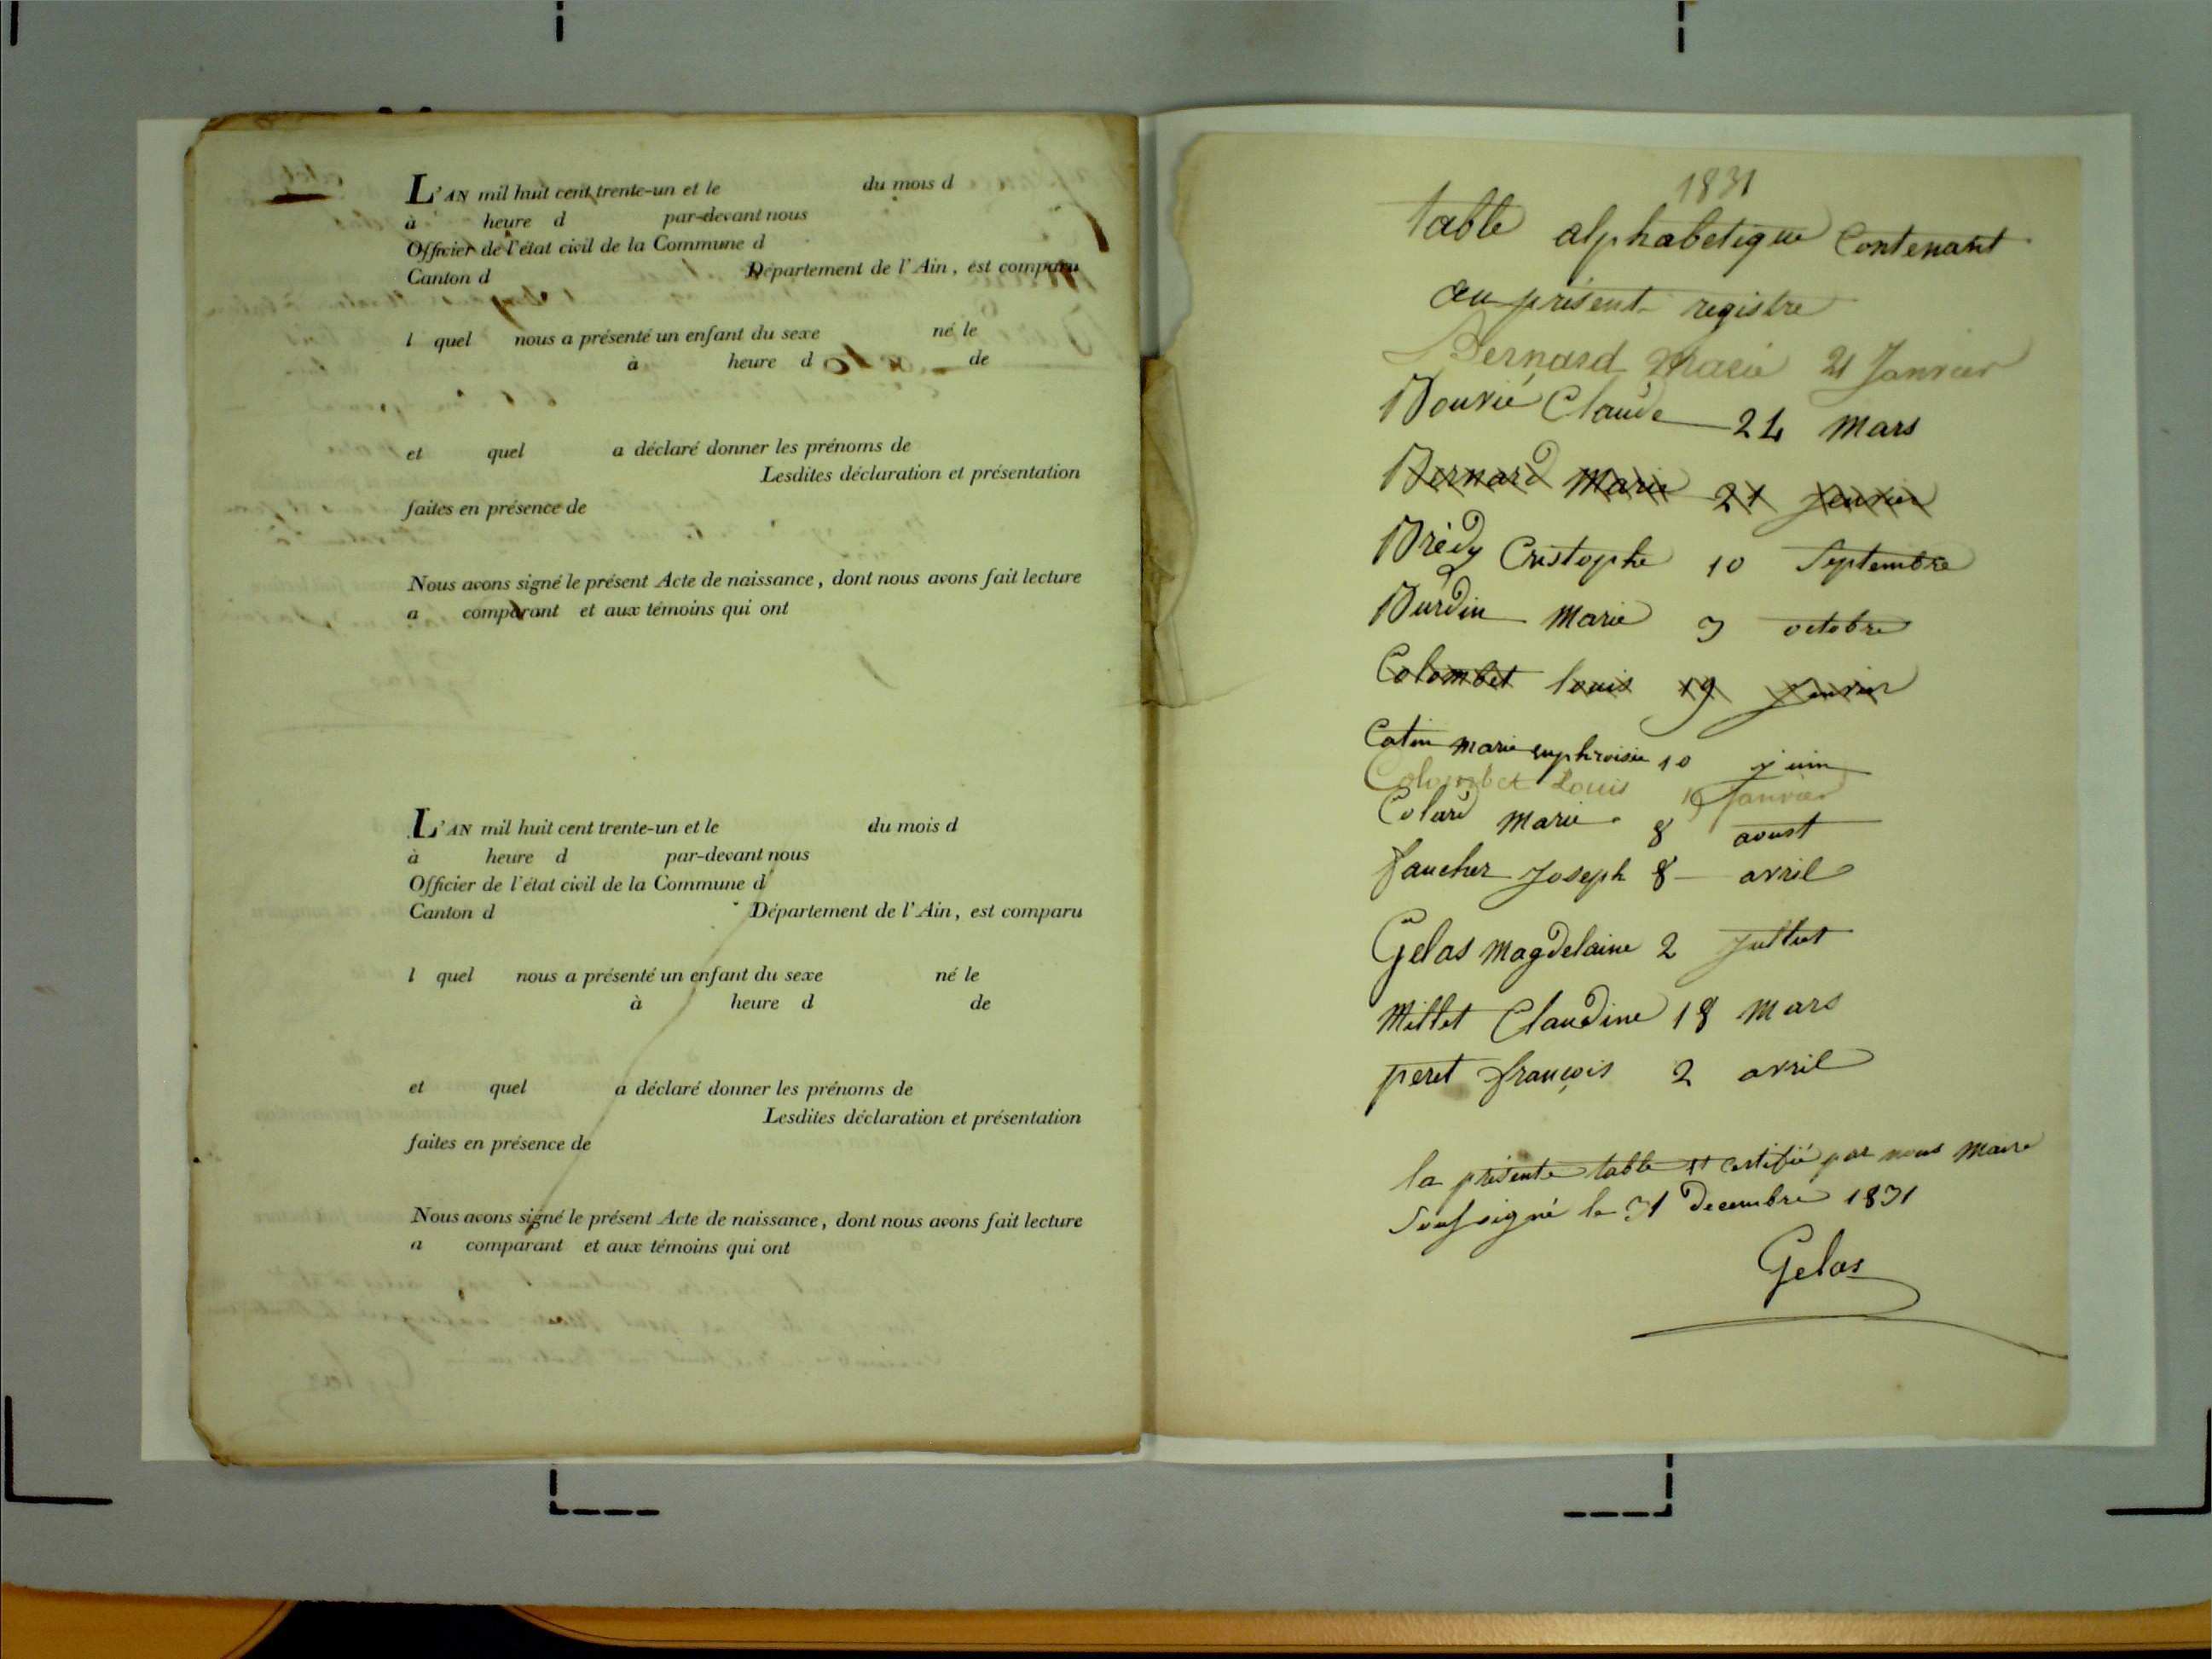 L'AN mil huit cent trente-un et le du mois d
à heure d par-devant nous
Officier de l'état civil de la Commune d
Canton d Département de l'Ain, est comparu
l quel nous a présenté un enfant du sexe né le
à heure d de
et quel a déclaré donner les prénoms de
Lesdites déclaration et présentation
faites en présence de
Nous avons signé le présent Acte de naissance, dont nous avons fait lecture
a comparant et aux témoins qui ont
L'AN mil huit cent trente-un et le du mois d
à heure d par-devant nous
Officier de l'état civil de la Commune d
Canton d Département de l'Ain, est comparu
l quel nous a présenté un enfant du sexe né le
à heure d de
et quel a déclaré donner les prénoms de
Lesdites déclaration et présentation
faites en présence de
Nous avons signé le présent Acte de naissance, dont nous avons fait lecture
a comparant et aux témoins qui ont
1831
table alphabetique Contenant
au présent registre
Bernard Marie 21 Janvier
Bouvié Claude 24 Mars
Bernard Marie 21 Janvier
Brédy Cristophe 10 Septembre
Burdin Marie 3 octobre
Colombet louis 19 Janvier
Catin marie euphroisie 10 juin
Colombet Louis 19 Janvier
Colard Marie 8 avust
faucher Joseph 8 avril
Gelas Magdelaine 2 Juillet
Millet Claudine 18 Mars
peret françois 2 avril
la présente table et certifié par nous Maire
Soussigné le 31 Decembre 1831
Gelas